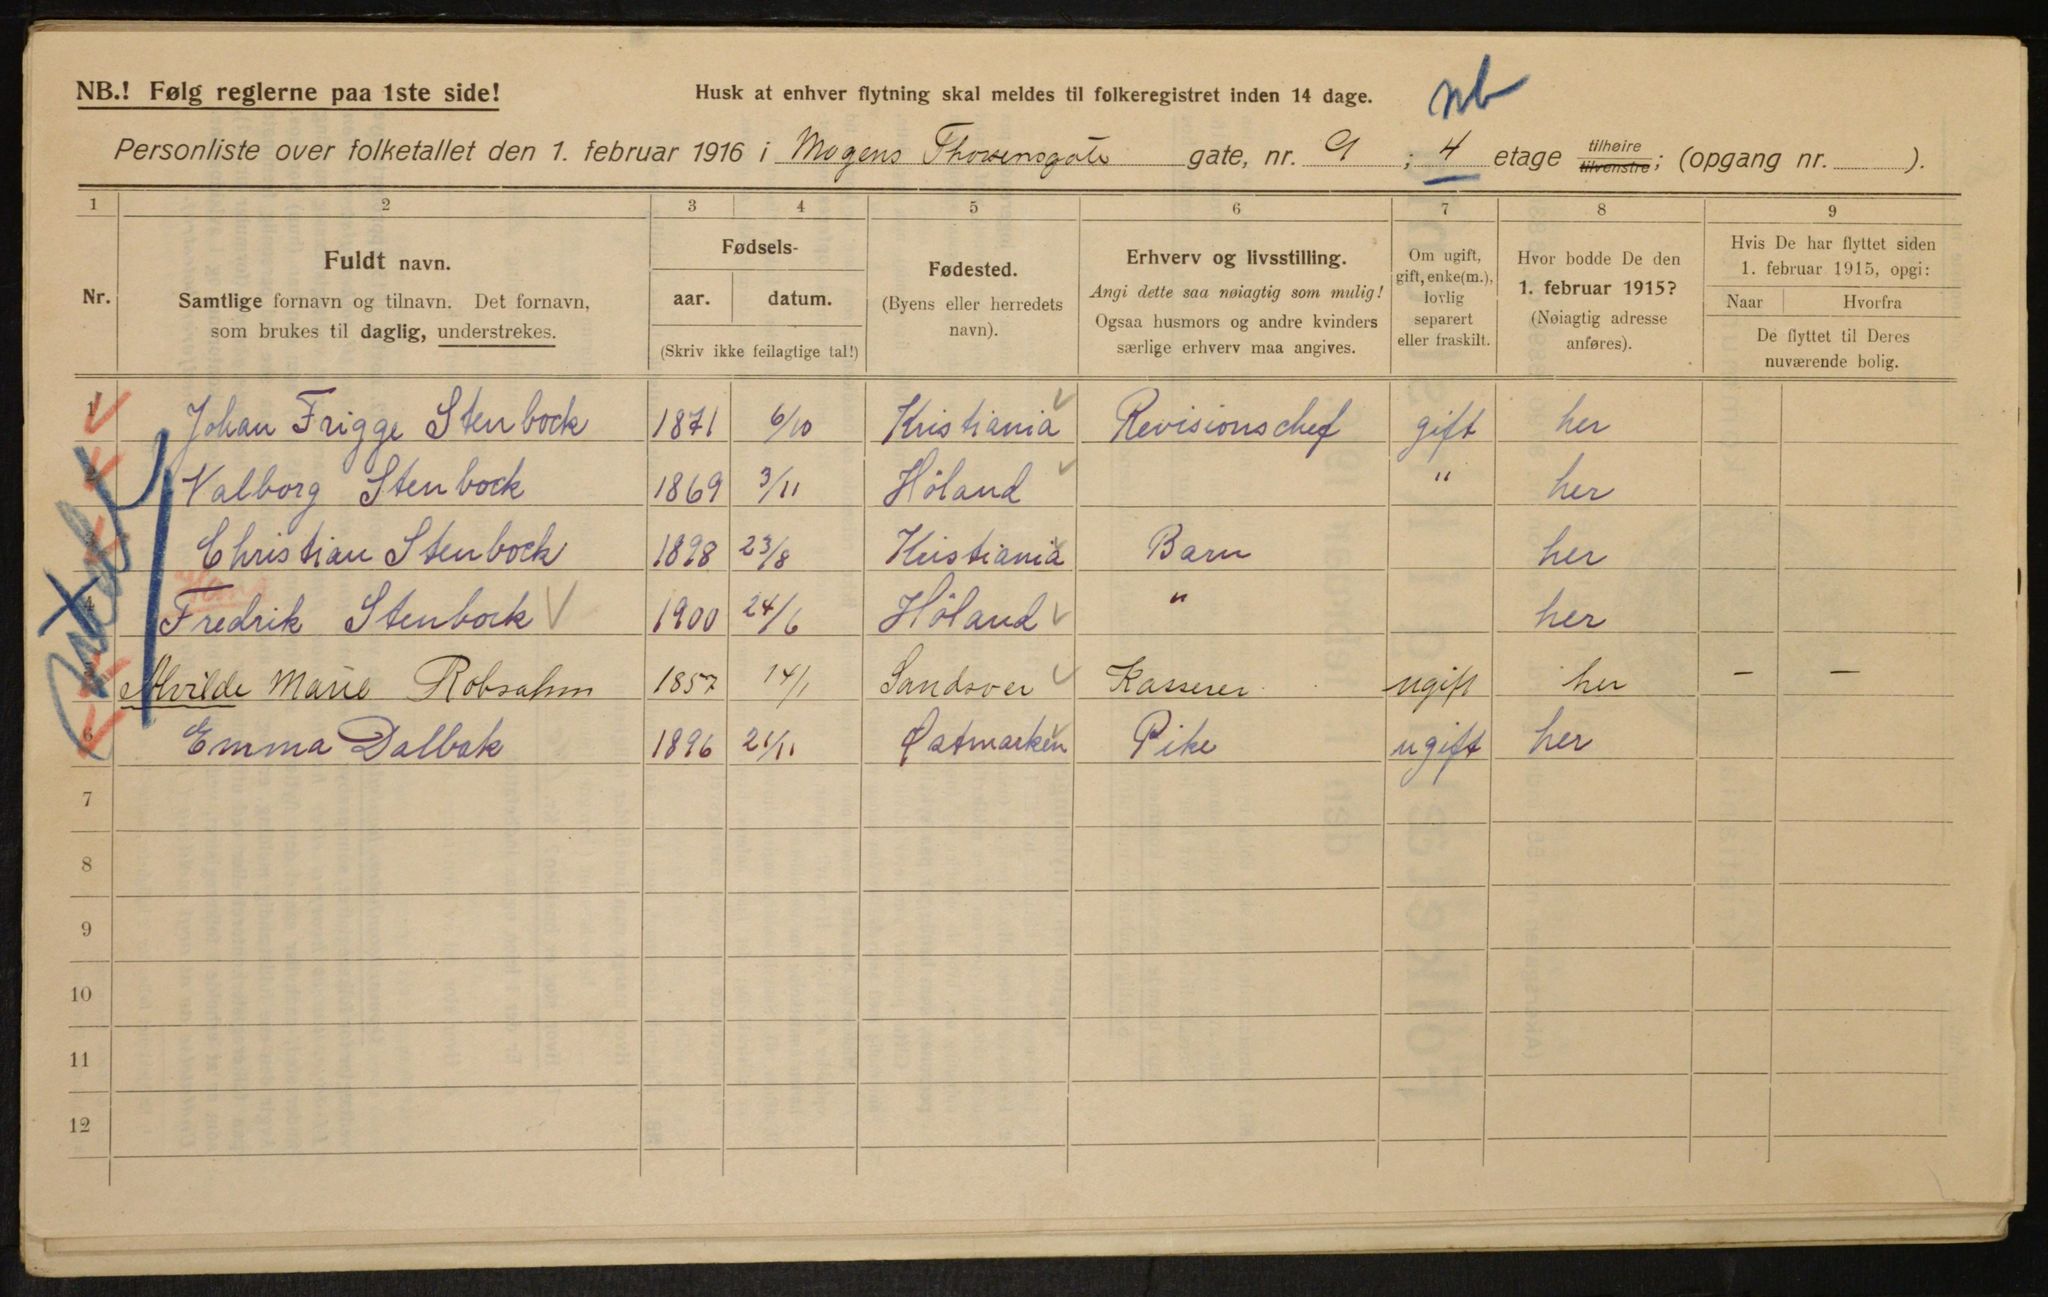 NB.! Følg reglerne paa 1ste side!
Husk at enhver flytning skal meldes til folkeregistret inden 14 dage.
nb
Personliste over folketallet den 1. februar 1916 i Mogens Thorsensgate gate, nr. 9 ; 4 etage tilhøire tilvenstre; (opgang nr. ).
1 2 3 4 5 6 7 8 9
Nr.
Fuldt navn.
Samtlige fornavn og tilnavn. Det fornavn,
som brukes til daglig, understrekes.
Fødsels-
aar. datum.
(Skriv ikke feilagtige tal!)
Fødested.
(Byens eller herredets
navn).
Erhverv og livsstilling.
Angi dette saa nøiagtig som mulig!
Ogsaa husmors og andre kvinders
særlige erhverv maa angives.
Om ugift,
gift, enke(m.),
lovlig
separert
eller fraskilt.
Hvor bodde De den
1. februar 1915?
(Nøiagtig adresse
anføres).
Hvis De har flyttet siden
1. februar 1915, opgi:
Naar Hvorfra
De flyttet til Deres
nuværende bolig.
1 Johan Frigge Stenbock 1871 6/10 Kristiania Revisionschef gift her
2 Valborg Stenbock 1869 3/11 Höland " her
3 Christian Stenbock 1898 23/8 Kristiania Barn her
4 Fredrik Stenbock 1900 24/6 Höland " her
5 Alvilde Marie Robsahm 1857 14/1 Sandsver Kasserer ugift her - -
6 Emma Dalbak 1896 21/11 Østmarken Pike ugift her
7
8
9
10
11
12